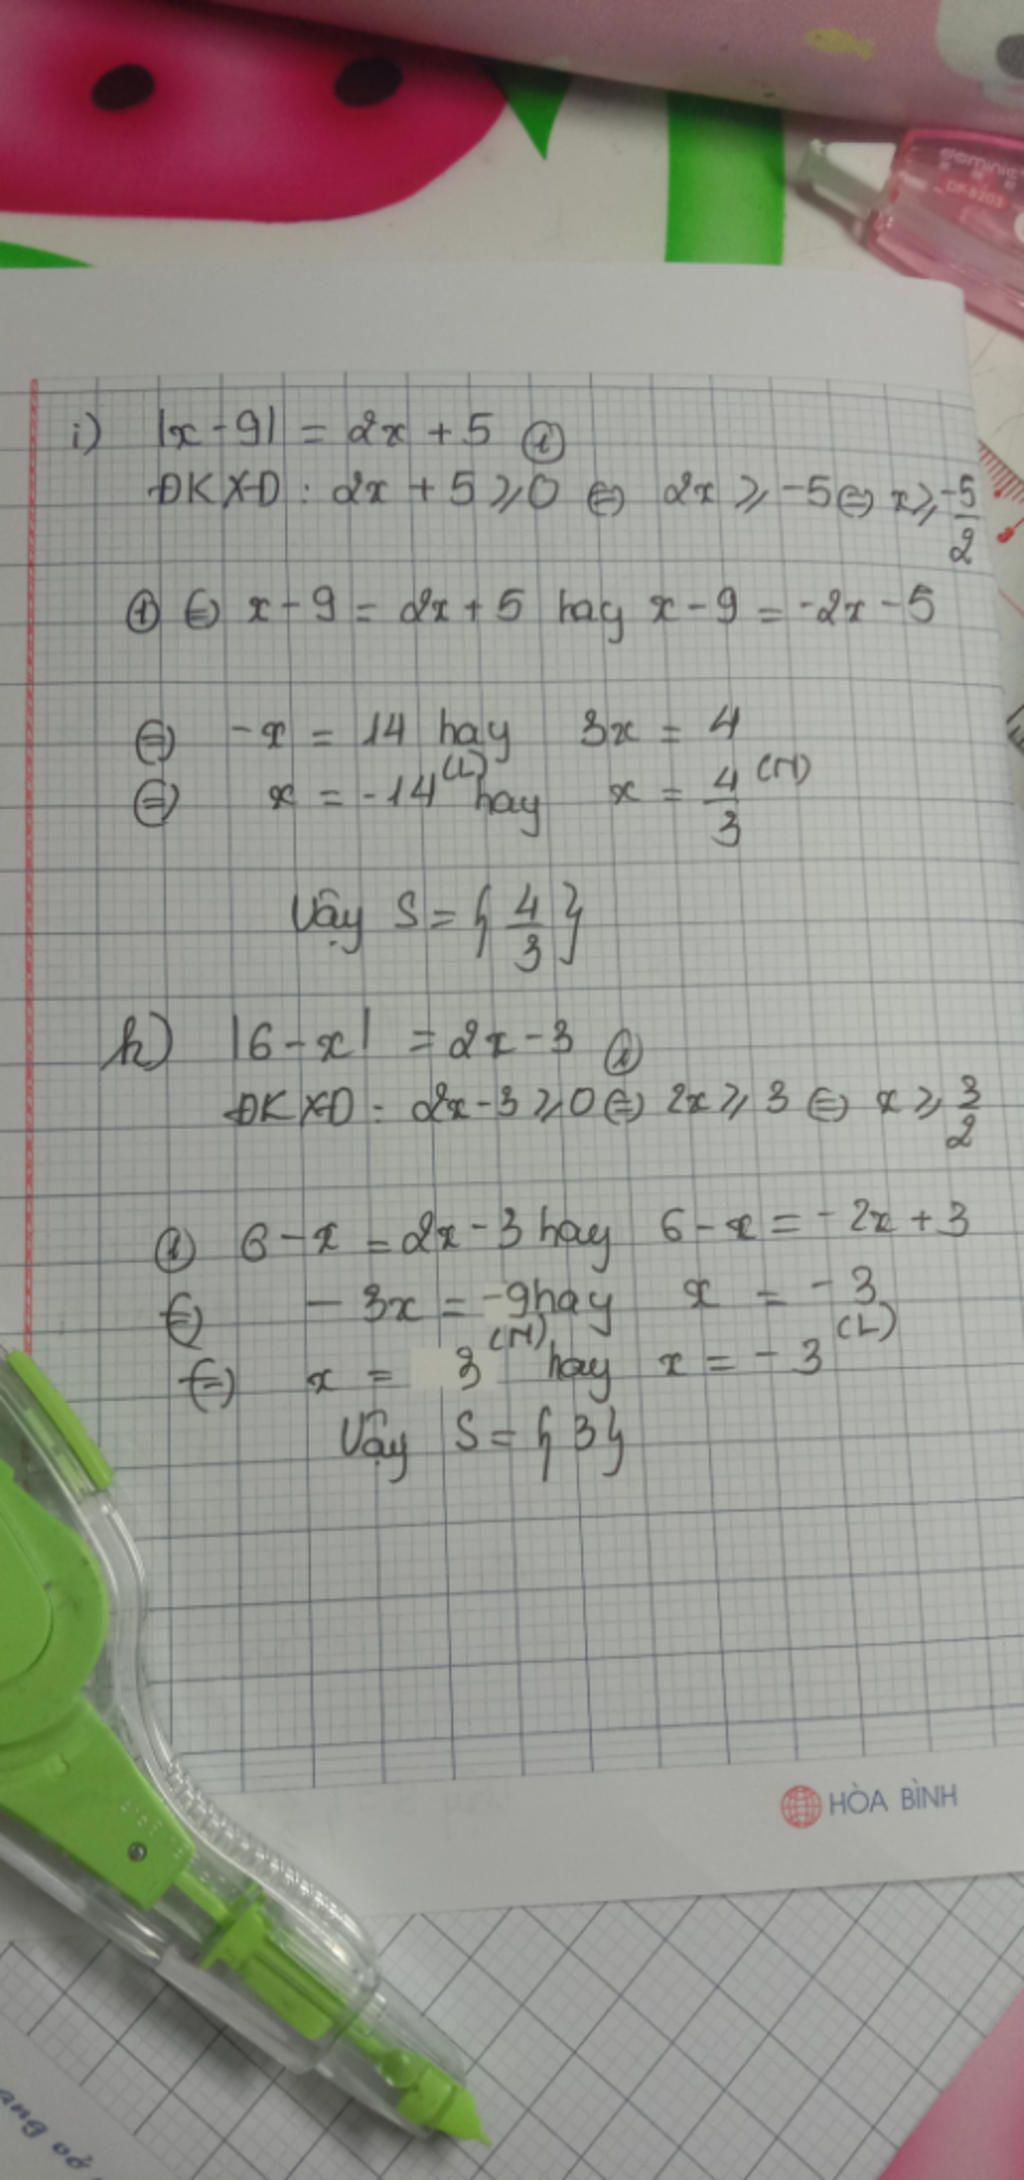 GEMINI
DP-6203
i) |x-9| = 2x + 5 (1)
ĐKXĐ : 2x + 5 ⩾ 0 ⇔ 2x ⩾ -5 ⇔ x ⩾ -5/2
(1) ⇔ x - 9 = 2x + 5 hay x - 9 = -2x - 5
⇔ -x = 14 hay 3x = 4
⇔ x = -14 (L) hay x = 4/3 (N)
Vậy S = { 4/3 }
h) |6 - x| = 2x - 3 (1)
ĐKXĐ : 2x - 3 ⩾ 0 ⇔ 2x ⩾ 3 ⇔ x ⩾ 3/2
(1) 6 - x = 2x - 3 hay 6 - x = -2x + 3
⇔ - 3x = -9 hay x = -3
⇔ x = 3 (N) hay x = -3 (L)
Vậy S = { 3 }
HÒA BÌNH